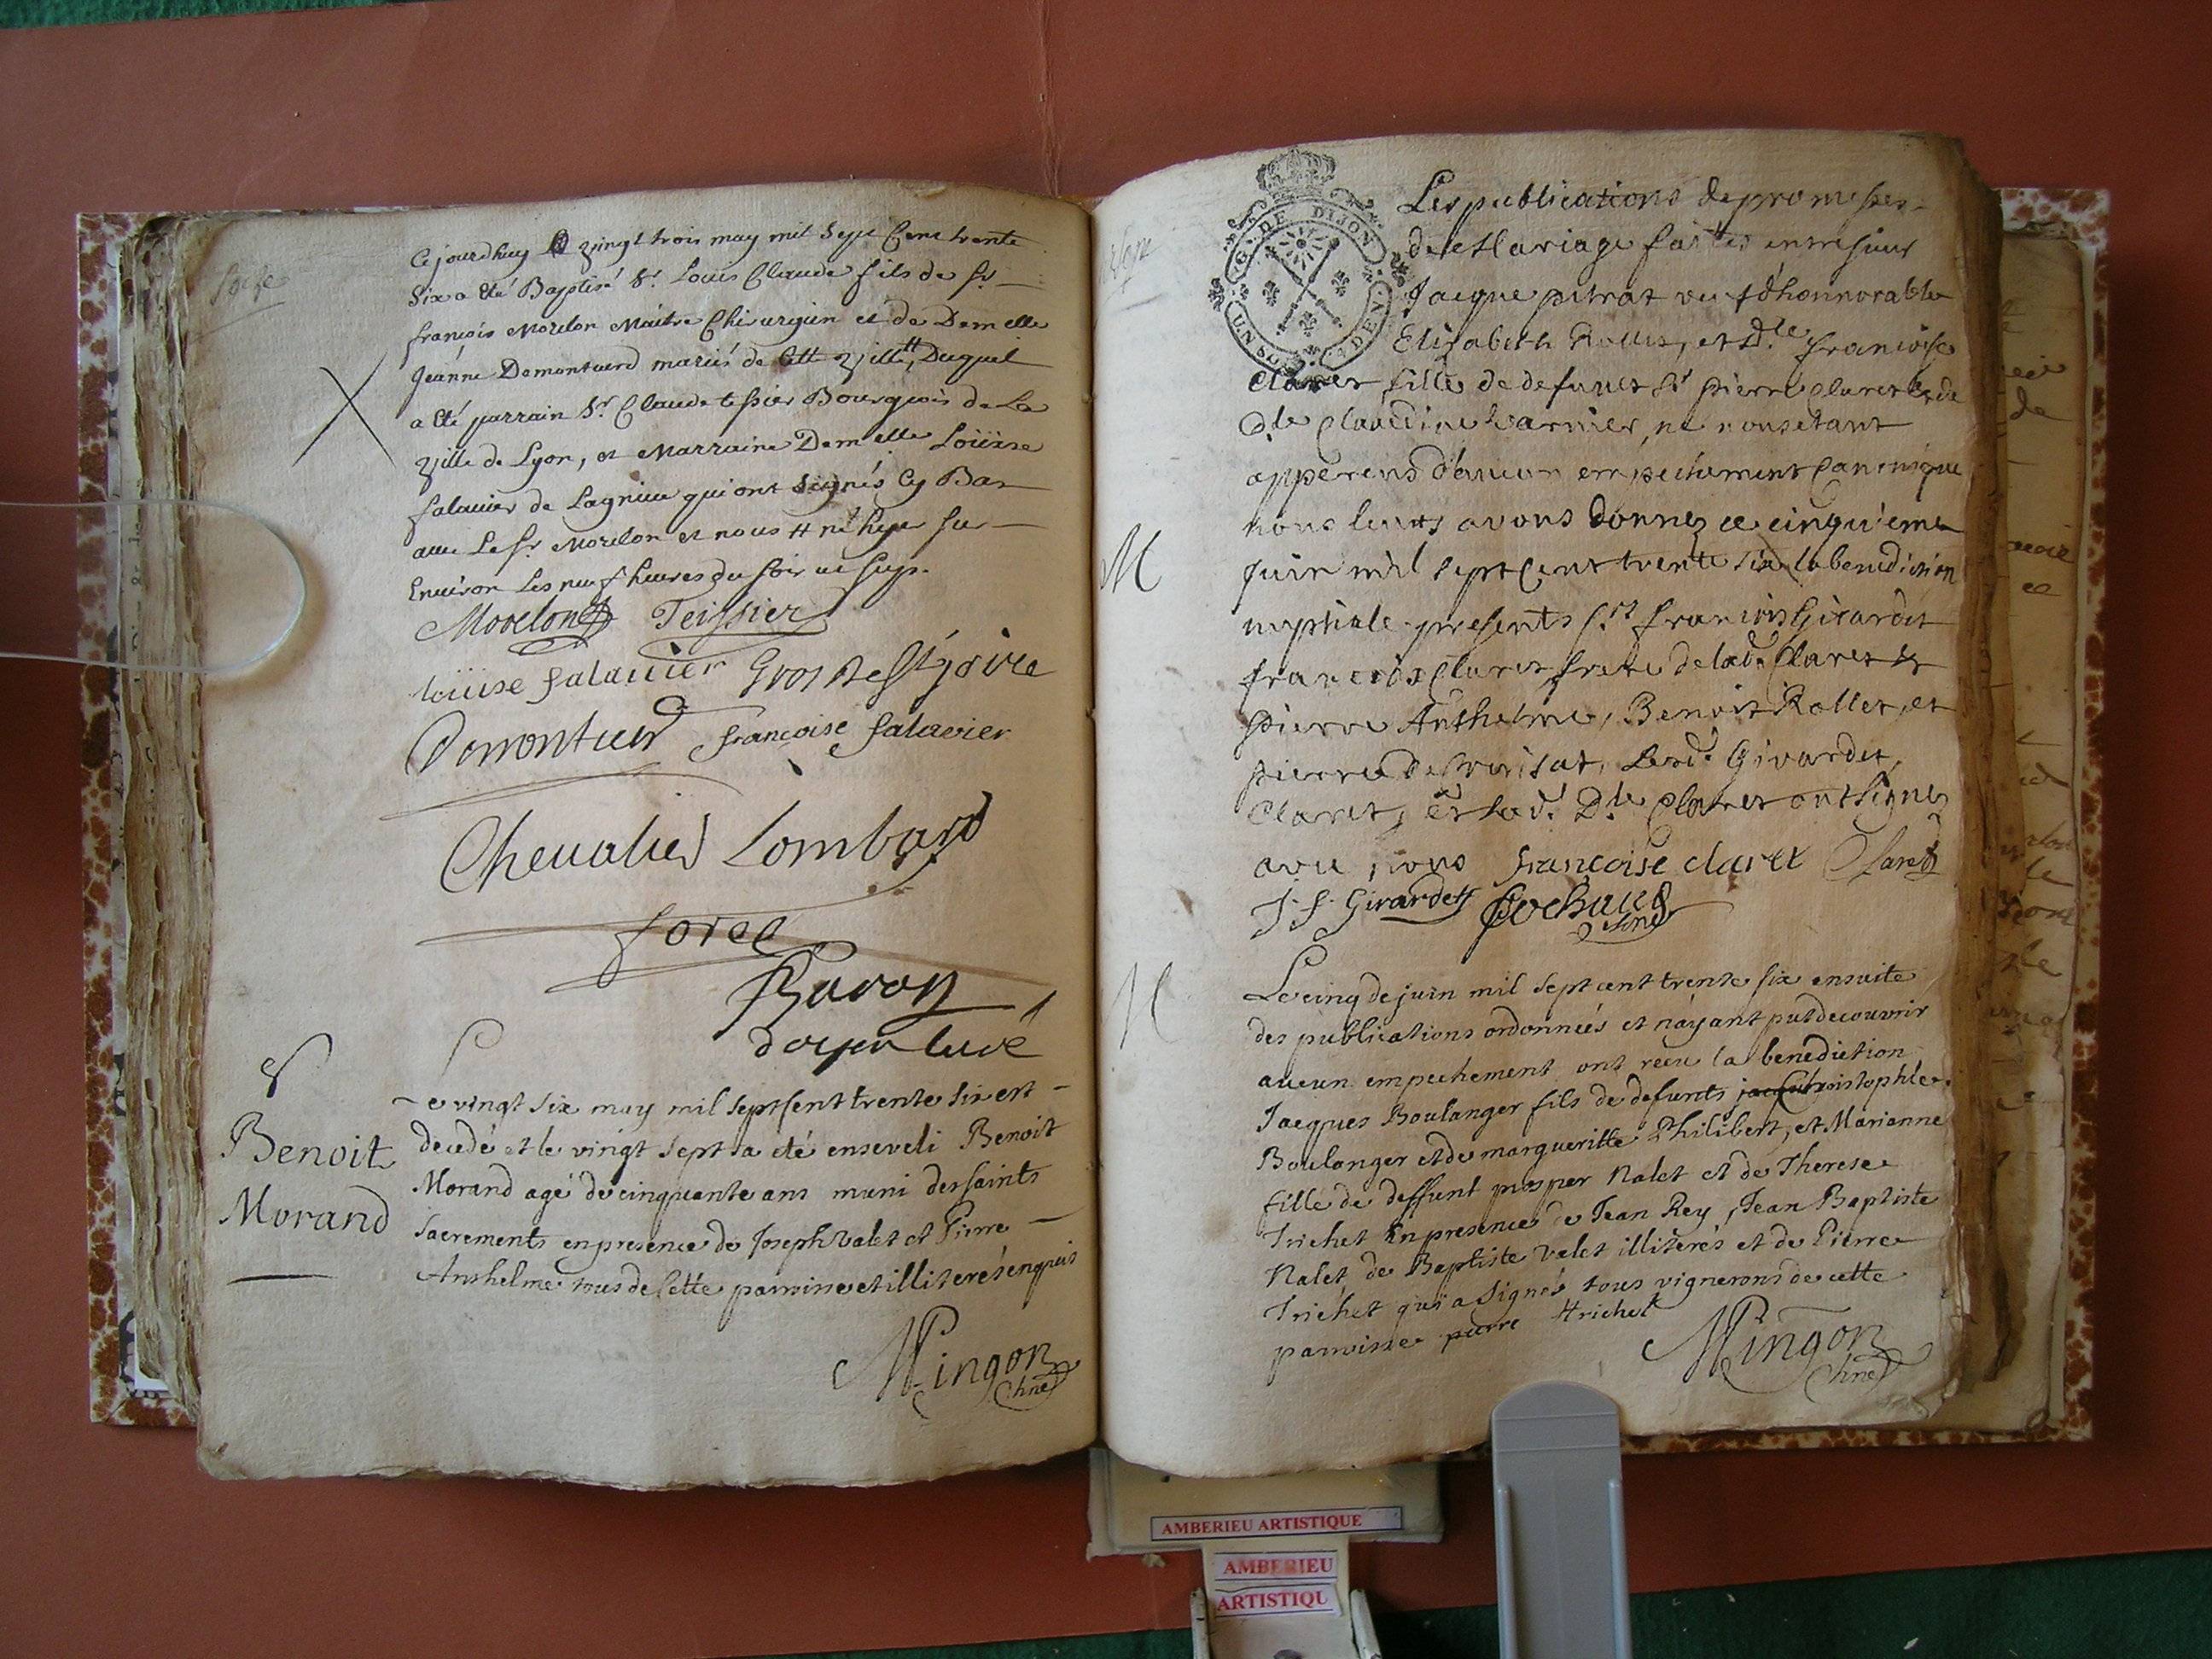 Cejourdhuy vingt trois may mil sept Cent trente
Six a été Baptisé Sr. Louis Claude fils de Sr
françois Morelon Maitre Chirurgien et de Demelle
Jeanne Demontuerd mariés de Cette ville, Duquel
a été parrain Sr Claude tessier Bourgeois de La
ville de Lyon, et Marraine Demelle Loüise
falauier de Lagnieu qui ont signés Cy Bas
auec Le Sr Morelon et nous né hyer sur
Enuiron Les neuf heures du soir ut sup.
Morelon Teissier
loüise falauier Gros De St joire
Demontuerd françoise falavier
Chevalier Lombard
forel
Buron
doyen curé
8
Benoit
Morand
Le vingt six may mil sept Cent trente six est
decedé et le vingt sept a eté enseveli Benoit
Morand agé de cinquante ans muni des saints
sacrements en presence de Joseph Valet et Pierre
Anthelme tous de Cette parroisse et illiterés enquis
Mingon
Chne
G. DE DIJON
Les publications de promesses
de Mariage faittes entre sieur
Jacque putrat veuf d'honnorable
Elizabeth Rollet, et Dle françoise
Claret fille de defunct Sr pierre Claret & de
Dle Claudine Varnier, ne nous etant
apperçus d'aucun empechement Canonique
nous leurs avons donnez ce cinquieme
Juin mil sept Cent trente six la benediction
nuptiale presents Srs françois Girardet
françois Claret frere de lad. Claret &
pierre Anthelme, Benoit Rollet, et
pierre Lesd. Girardet,
Claret, et lad. Dle Claret ont signez
avec nous françoise claret Claret
M
J. f. Girardet Cochaud
Chne
M
Le cinq de juin mil sept cent trente six ensuite
des publications ordonnées et n'ayant put decouvrir
aucun empechement ont recu la benediction
Jacques Boulanger fils de defunts Christophle
Boulanger et de margueritte Philibert, et Marianne
fille de deffunt prosper Nalet et de Therese
Trichet En presence de Jean Rey, Jean Baptiste
Nalet de Baptiste Valet illiterés et de Pierre
Trichet qui a signés tous vignerons de cette
parroisse pierre trichet
Mingon
Chne
AMBERIEU ARTISTIQUE
AMBERIEU
ARTISTIQU